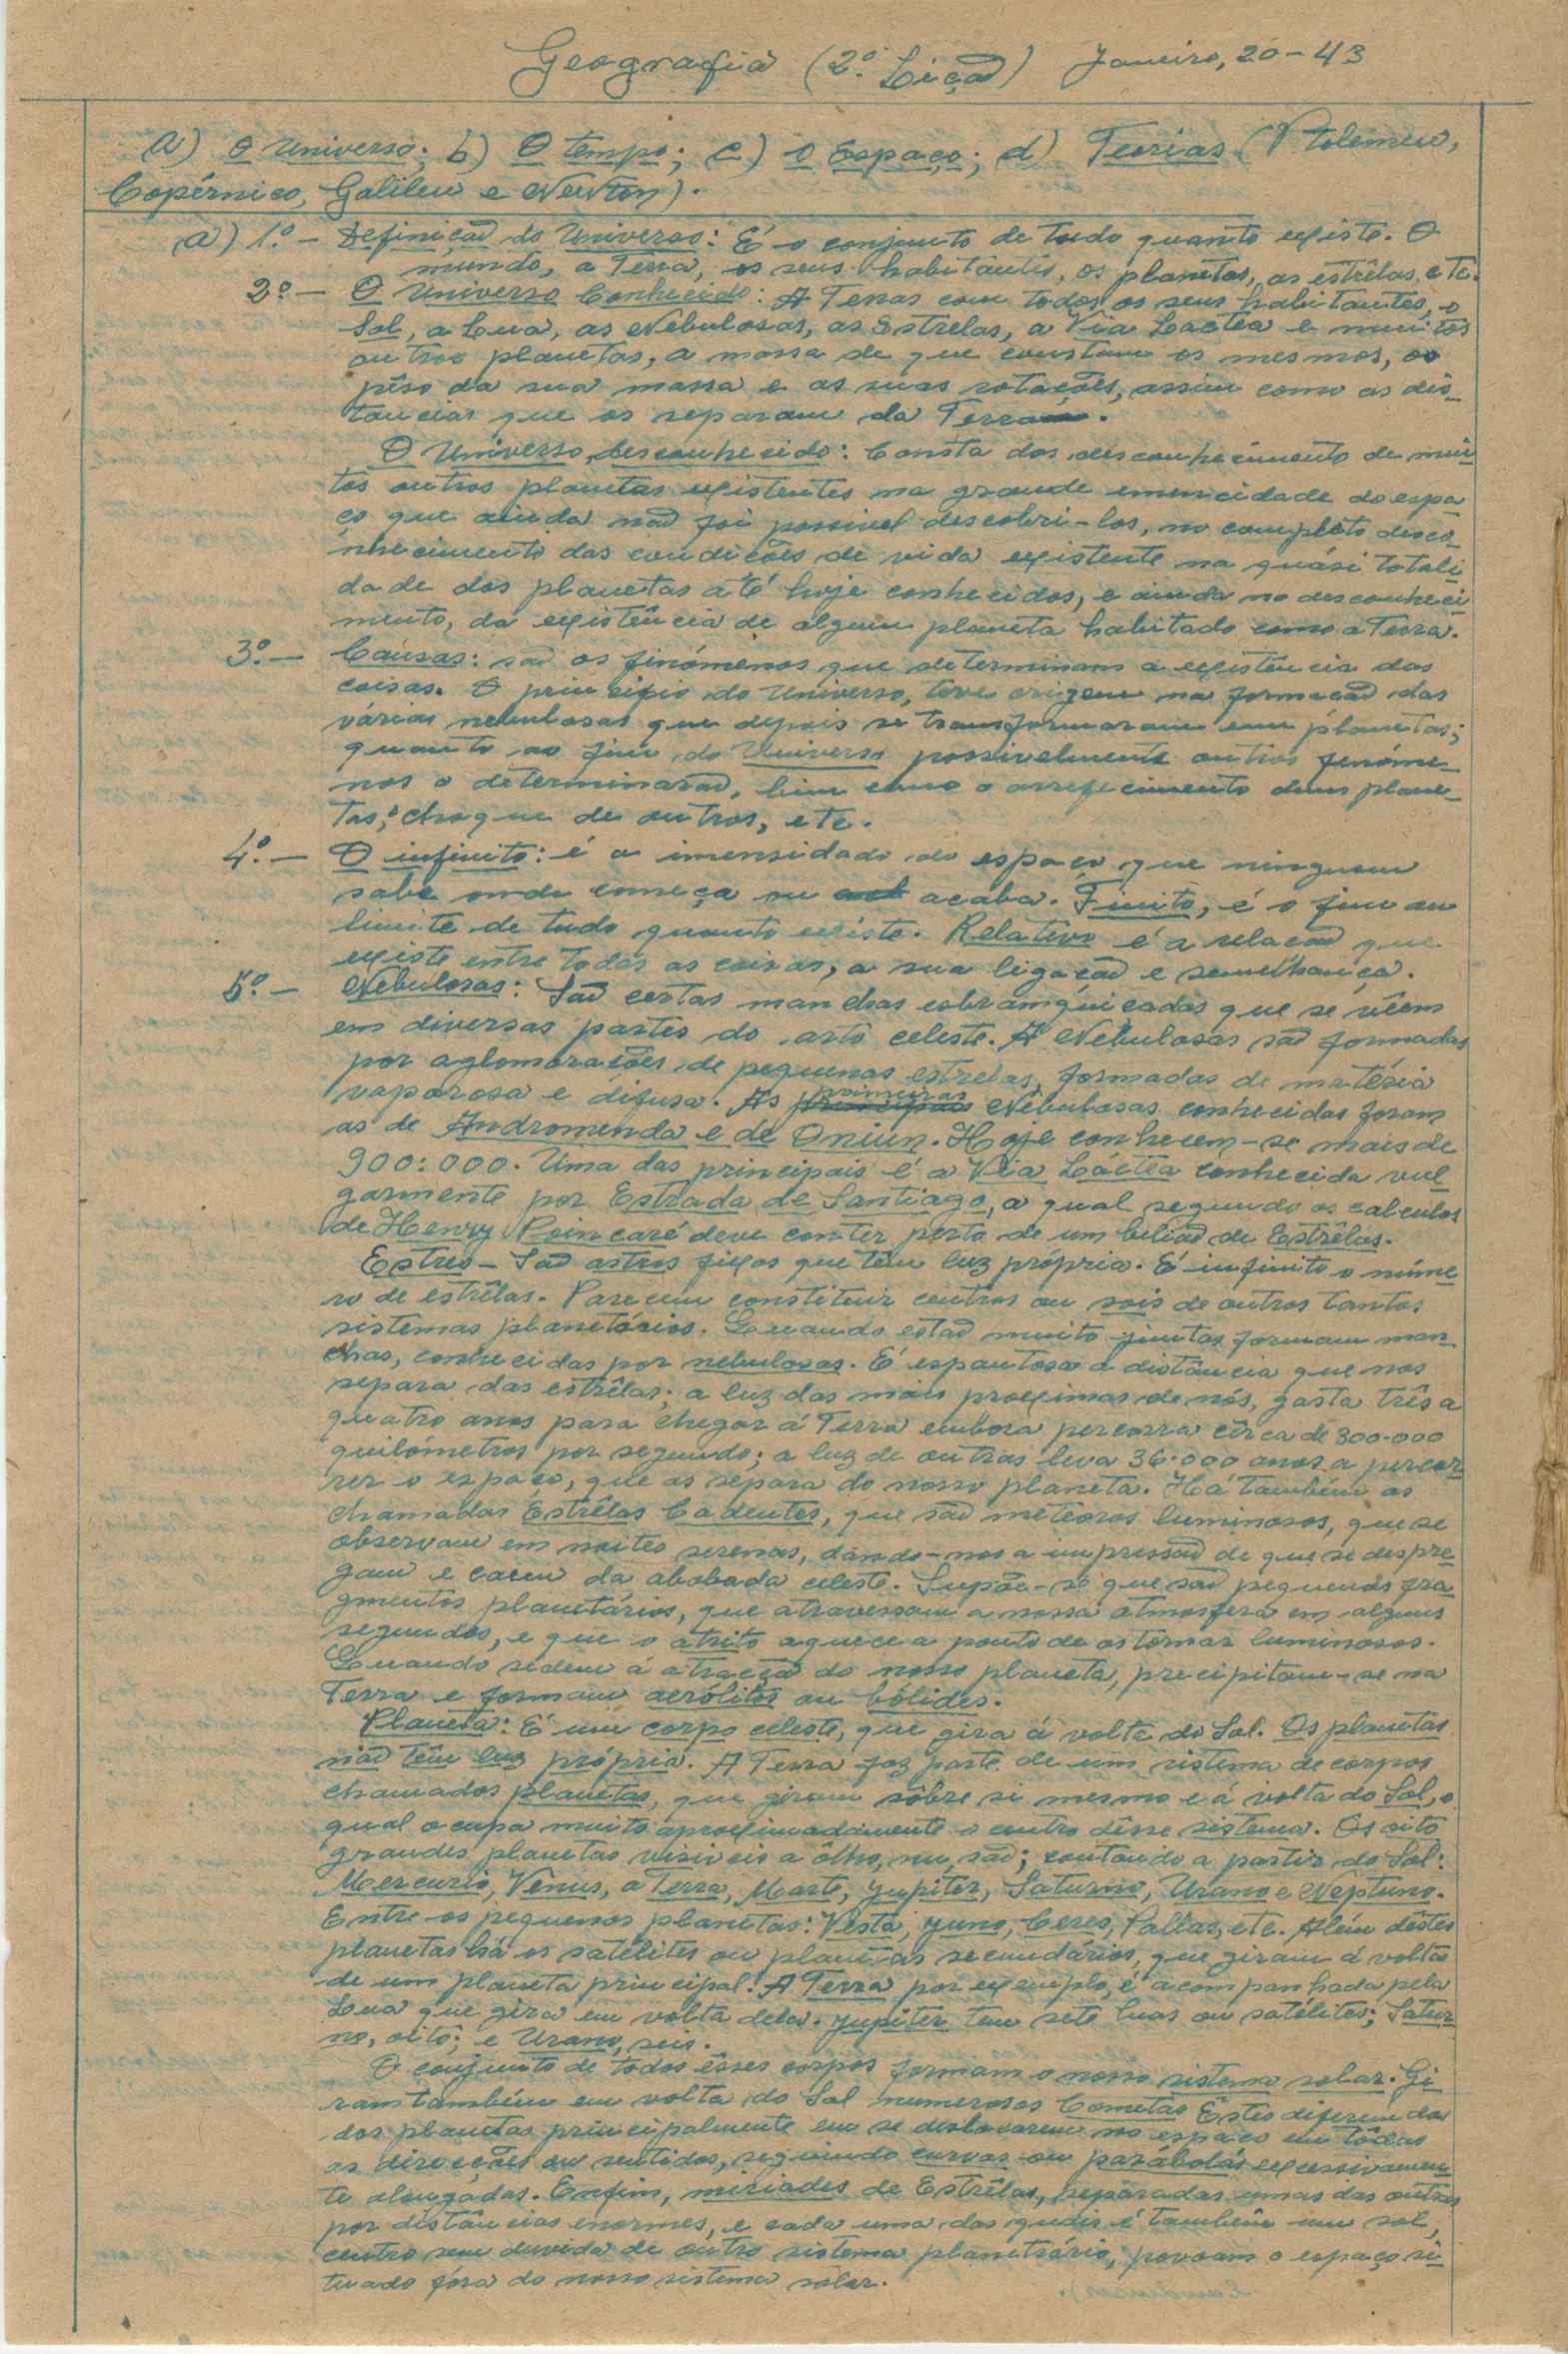 Geografia (2ª Lição) Janeiro, 20-43
a) O Universo; b) O tempo; c) O Espaço; d) Teorias (Ptolemeu,
Copérnico, Galileu e Newton).
a) 1.º - Definição do Universo: É o conjunto de tudo quanto existe. O
mundo, a Terra, os seus habitantes, os planetas, as estrêlas, etc.
2.º - O Universo Conhecido: A Terras com todos os seus habitantes, o
Sol, a Lua, as Nebulosas, as Estrelas, a Via Lactea e muitos
outros planetas, a massa de que constam os mesmos, os
pêso da sua massa e as suas rotações, assim como as dis-
tancias que os separam da Terra.
O Universo desconhecido: Consta dos desconhecimento de mui
tos outros planetas existentes na grande emencidade do espa
ço que ainda não foi possivel descobri-los, no completo desco-
nhecimento das condições de vida existente na quási totali
dade dos planetas até hoje conhecidos, e ainda no desconheci
mento, da existência de algum planeta habitado como a Terra.
3.º - Causas: são os finómenos que determinam a existência das
coisas. O principio do Universo, teve origem na formação das
várias nebulosas que depois se transformaram em planetas;
quanto ao fim do Universo possivelmente outros fenóme-
nos o determinarão, bem como o arrefecimento dum plane-
tas, choque de outros, etc.
4.º - O infinito: é a imensidade do espaço que ninguem
sabe onde começa ou acaba. Finito, é o fim ou
limite de tudo quanto existe. Relativo é a relação que
existe entre todas as coisas, a sua ligação e semelhança.
5.º - Nebulosas: São certas manchas esbranquicadas que se vêem
em diversas partes do arto celeste. A Nebulosas são formadas
por aglomerações de pequenas estrelas, formadas de matéria
vaporosa e difusa. As primeiras Nebulosas conhecidas foram
as de Andromenda e de Oniun. Hoje conhecem-se mais de
900:000. Uma das principais é a Via Láctea conhecida vul
garmente por Estrada de Santiago, a qual segundo os calculos
de Henry Poincaré deve conter perto de um bilião de Estrêlas.
Estres - São astros fixos que têm luz própria. É infinito o núme
ro de estrêlas. Parecem constituir centros ou sois de outros tantos
sistemas planetários. Quando estão muito juntas formam man-
chas, conhecidas por nebulosas. É espantosa a distância que nos
separa das estrêlas; a luz das mais proximas de nós, gasta três a
quatro anos para chegar á Terra embora percorra cêrca de 300.000
quilómetros por segundo; a luz de outras leva 36.000 anos a percor
rer o espaço, que as separa do nosso planeta. Há também as
chamadas Estrêlas Cadentes, que são meteoros luminosos, que se
observam em noites serenas, dando-nos a impressão de que se despre
gam e caem da abobada celeste. Supõe-se que são pequenos fra
gmentos planetários, que atravessam a nossa atmosfera em alguns
segundos, e que o atrito aquece a ponto de os tornar luminosos.
Quando sedem á atracção do nosso planeta, precipitam-se na
Terra e formam aerólitos ou bólides.
Planeta: É um corpo celeste, que gira á volta do Sol. Os planetas
não têm luz própria. A Terra faz parte de um sistema de corpos
chamados planetas, que giram sôbre si mesmo e á volta do Sol, o
qual ocupa muito aproximadamente o centro dêsse sistema. Os oito
grandes planetas visiveis a ôlho, nu, são; contando a partir do Sol:
Mercurio, Vénus, a Terra, Marte, Jupiter, Saturno, Urano e Neptuno.
Entre os pequenos planetas: Vesta, Juno, Ceres, Pallas, etc. Além dêstes
planetas há os satélites ou planetas secundários, que giram á volta
de um planeta principal. A Terra por exemplo, é acompanhada pela
Lua que gira em volta dela. Jupiter tem sete luas ou satélites; Satur
no, oito; e Urano, seis.
O conjunto de todos êsses corpos formam o nosso sistema solar. Gi
ram também em volta do Sol numerosos Cometas Estes diferem dos
dos planetas principalmente em se deslocarem no espaço em tôdas
as direcções ou sentidos, seguindo curvas ou parábolas excessivamen
te alongadas. Enfim, miriades de Estrêlas, separadas umas das outras
por distâncias enormes, e cada uma das quais é também um sol,
centro sem duvida de outro sistema planetário, povoam o espaço si
tuado fóra do nosso sistema solar.